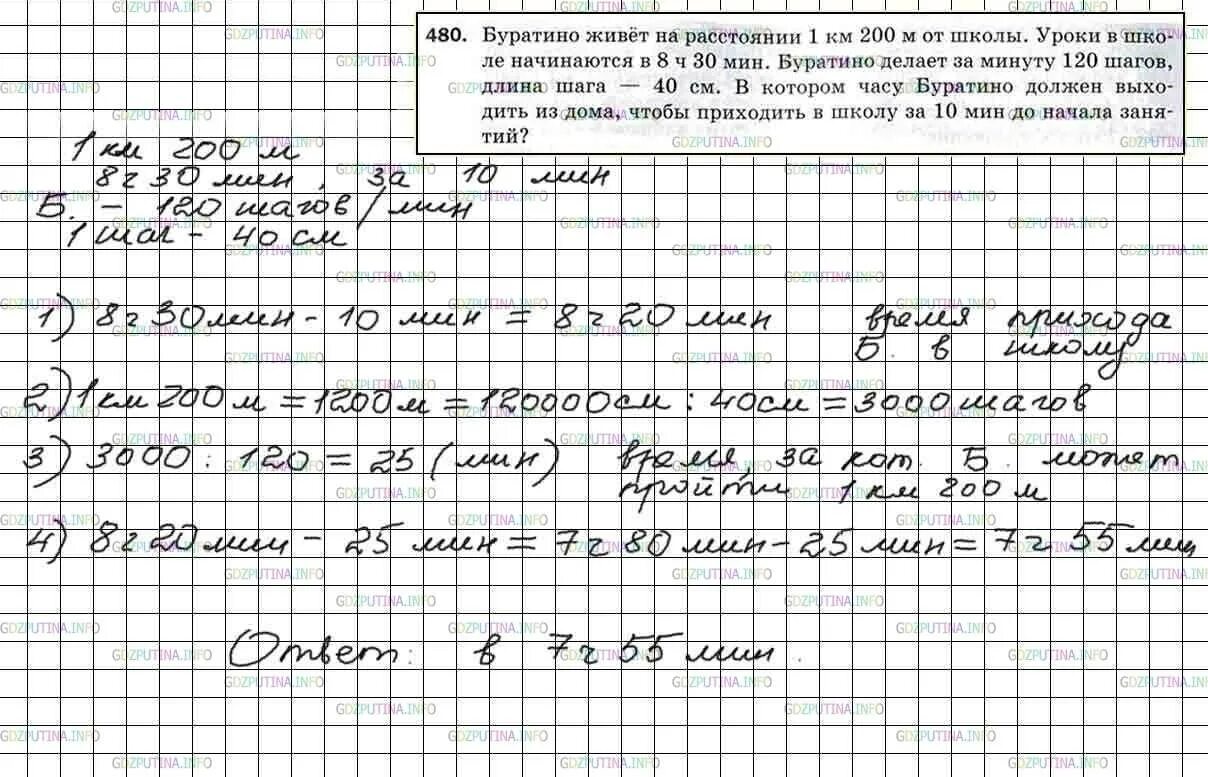 480. Буратино живёт на расстоянии 1 км 200 м от школы. Уроки в шко-
ле начинаются в 8 ч 30 мин. Буратино делает за минуту 120 шагов,
длина шага — 40 см. В котором часу Буратино должен выхо-
дить из дома, чтобы приходить в школу за 10 мин до начала заня-
тий?
1 км 200 м
8 ч 30 мин, за 10 мин
Б. - 120 шагов / мин
1 шаг - 40 см
1) 8 ч 30 мин - 10 мин = 8 ч 20 мин время прихода
Б. в школу
2) 1 км 200 м = 1200 м = 120000 см : 40 см = 3000 шагов
3) 3000 : 120 = 25 (мин) время, за кот. Б. может
пройти 1 км 200 м
4) 8 ч 20 мин - 25 мин = 7 ч 80 мин - 25 мин = 7 ч 55 мин
Ответ: в 7 ч 55 мин.
GDZPUTINA.INFO